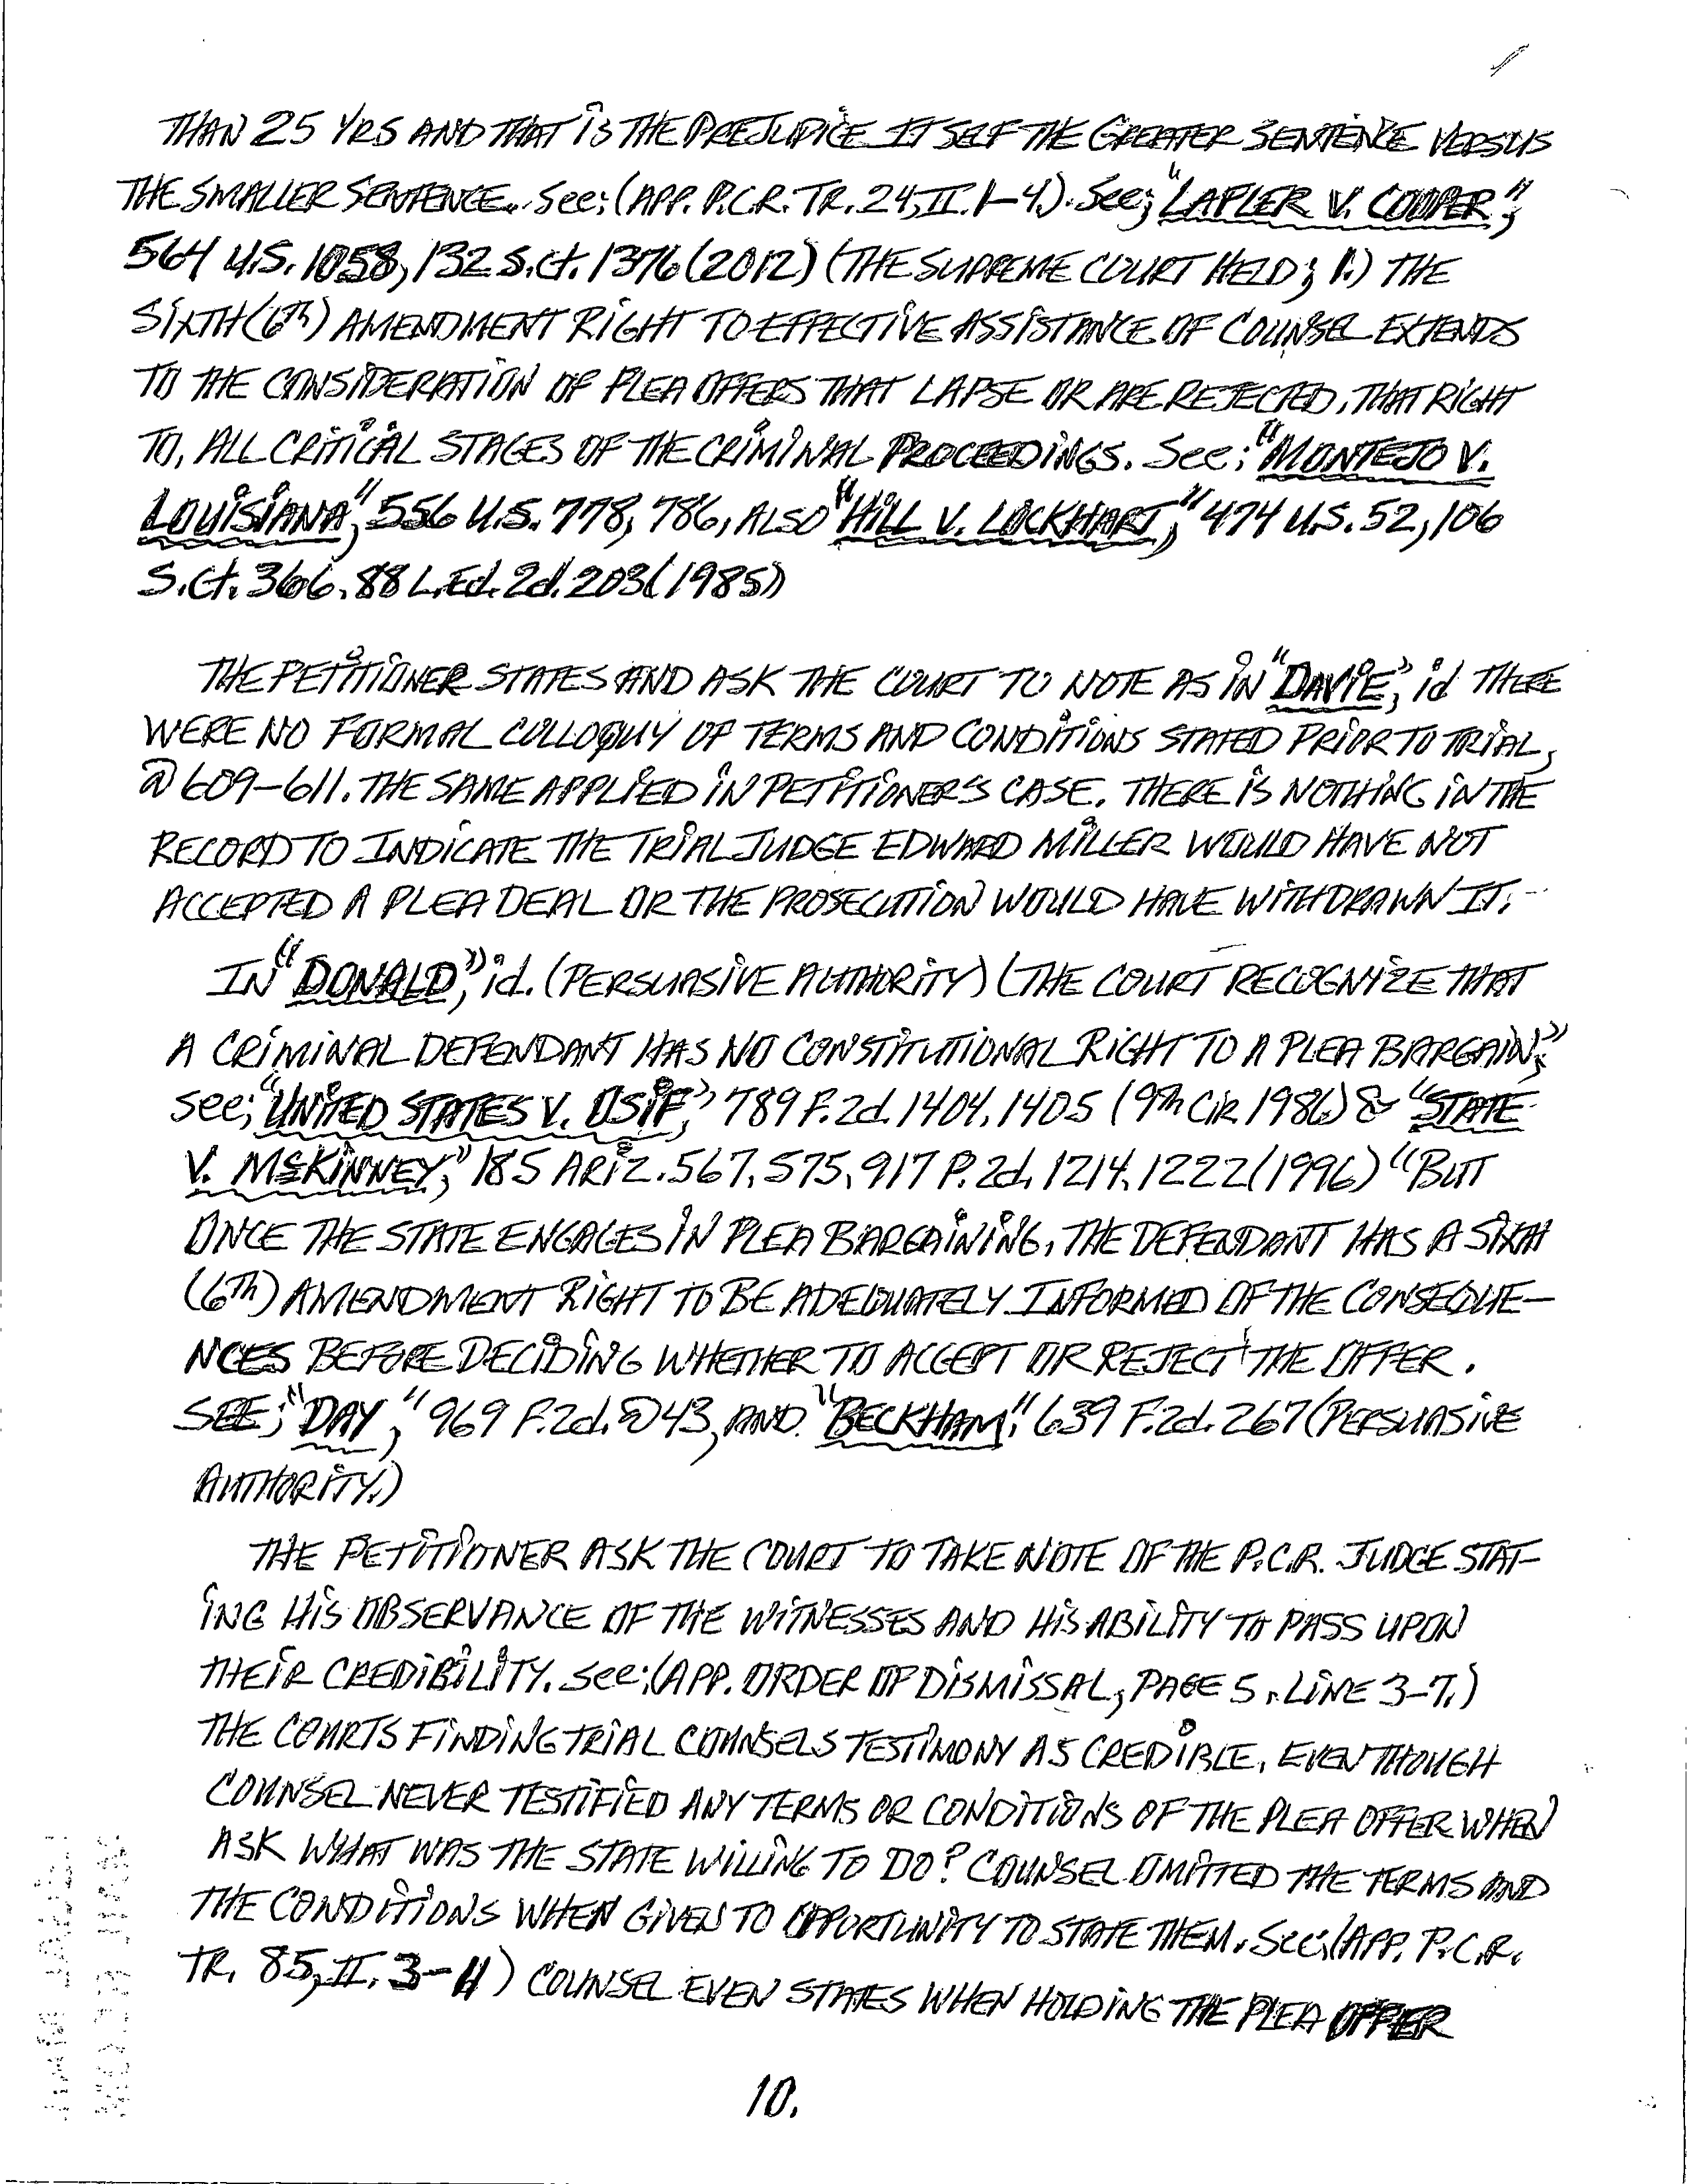 THAN 25 YRS AND THAT iS THE PREJUDiCE ITSELF THE GREATER SENTENCE VERSUS
THE SMALLER SENTENCE. See; (APP. P.C.R. TR. 24, II. 1-4.). See; "LAFLER V. COOPER",
564 U.S. 1058, 132 S.Ct. 1376 (2012) (THE SUPREME COURT HELD; 1.) THE
SiXTH (6Th) AMENDMENT RiGHT TO EFFECTiVE ASSiSTANCE OF COUNSEL EXTENDS
TO THE CONSIDERATiON OF PLEA OFFERS THAT LAPSE OR ARE REJECTED, THAT RiGHT
TO, ALL CRiTiCAL STAGES OF THE CRiMiNAL PROCEEDiNGS. See; "MONTEJO V.
LOUiSiANA", 556 U.S. 778, 786, ALSO "HiLL V. LOCKHART," 474 U.S. 52, 106
S.Ct. 366, 88 L.Ed. 2d. 203 (1985)
THE PETiTiONER STATES AND ASK THE COURT TO NOTE AS iN "DAViE", id THERE
WERE NO FORMAL COLLOQUY OF TERMS AND CONDiTiONS STATED PRiOR TO TRiAL,
@ 609-611. THE SAME APPLiED iN PETiTiONER'S CASE. THERE iS NOTHiNG iN THE
RECORD TO INDiCATE THE TRiAL JUDGE EDWARD MiLLER WOULD HAVE NOT
ACCEPTED A PLEA DEAL OR THE PROSECUTiON WOULD HAVE WiTHDRAWN IT.
IN "DONALD", id. (PERSUASiVE AUTHORiTY) (THE COURT RECOGNiZE THAT
A CRiMiNAL DEFENDANT HAS NO CONSTiTUTiONAL RiGHT TO A PLEA BARGAiN,"
see; "UNiTED STATES V. OSiF," 789 F.2d. 1404, 1405 (9Th CiR 1986) & "STATE
V. McKiNNEY," 185 ARiZ. 567, 575, 917 P.2d, 1214, 1222 (1996) "BUT
ONCE THE STATE ENGAGES iN PLEA BARGAiNiNG, THE DEFENDANT HAS A SiXTH
(6Th) AMENDMENT RiGHT TO BE ADEQUATELY INFORMED OF THE CONSEQUE-
NCES BEFORE DECiDiNG WHETHER TO ACCEPT OR REJECT THE OFFER.
SEE; "DAY," 969 F.2d. @ 43, AND "BECKHAM". 639 F.2d. 267 (PERSUASiVE
AUTHORiTY.)
THE PETiTiONER ASK THE COURT TO TAKE NOTE OF THE P.C.R. JUDGE STAT-
iNG HiS OBSERVANCE OF THE WiTNESSES AND HiS ABiLiTY TO PASS UPON
THEiR CREDiBiLiTY. See; (APP. ORDER OF DiSMiSSAL, PAGE 5, LiNE 3-7.)
THE COURTS FiNDiNG TRiAL COUNSELS TESTiMONY AS CREDiBLE, EVEN THOUGH
COUNSEL NEVER TESTiFiED ANY TERMS OR CONDiTiONS OF THE PLEA OFFER WHEN
ASK WHAT WAS THE STATE WiLLiNG TO DO? COUNSEL OMiTTED THE TERMS AND
THE CONDiTiONS WHEN GiVEN TO OPPORTUNiTY TO STATE THEM. See; (APP. P.C.R.
TR. 85, II. 3-11) COUNSEL EVEN STATES WHEN HOLDiNG THE PLEA OFFER
10.